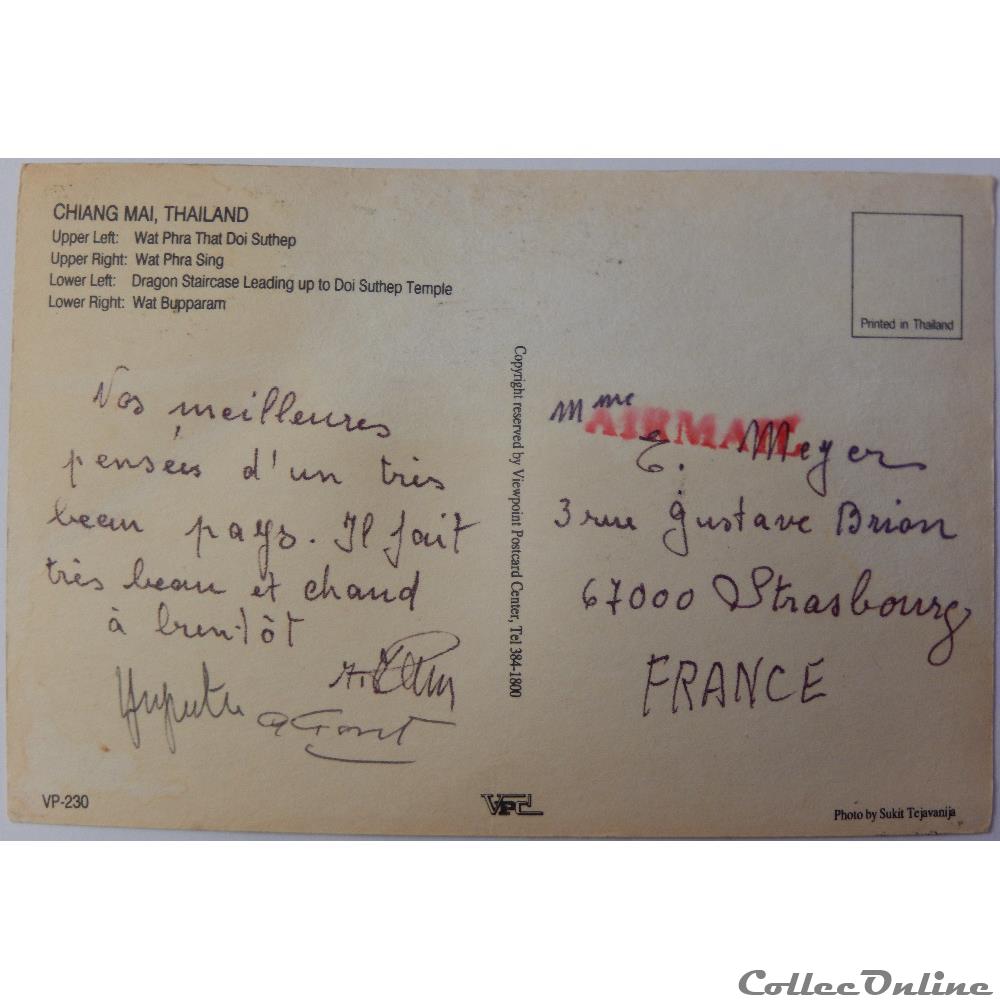 CHIANG MAI, THAILAND
Upper Left: Wat Phra That Doi Suthep
Upper Right: Wat Phra Sing
Lower Left: Dragon Staircase Leading up to Doi Suthep Temple
Lower Right: Wat Bupparam
Printed in Thailand
Nos meilleures
pensées d'un très
beau pays. Il fait
très beau et chaud
à bientôt
VP-230
Copyright reserved by Viewpoint Postcard Center, Tel 384-1800
VPC
AIRMAIL
Mme
E. Meyer
3 rue Gustave Brion
67000 Strasbourg
FRANCE
Photo by Sukit Tejavanija
CollecOnline